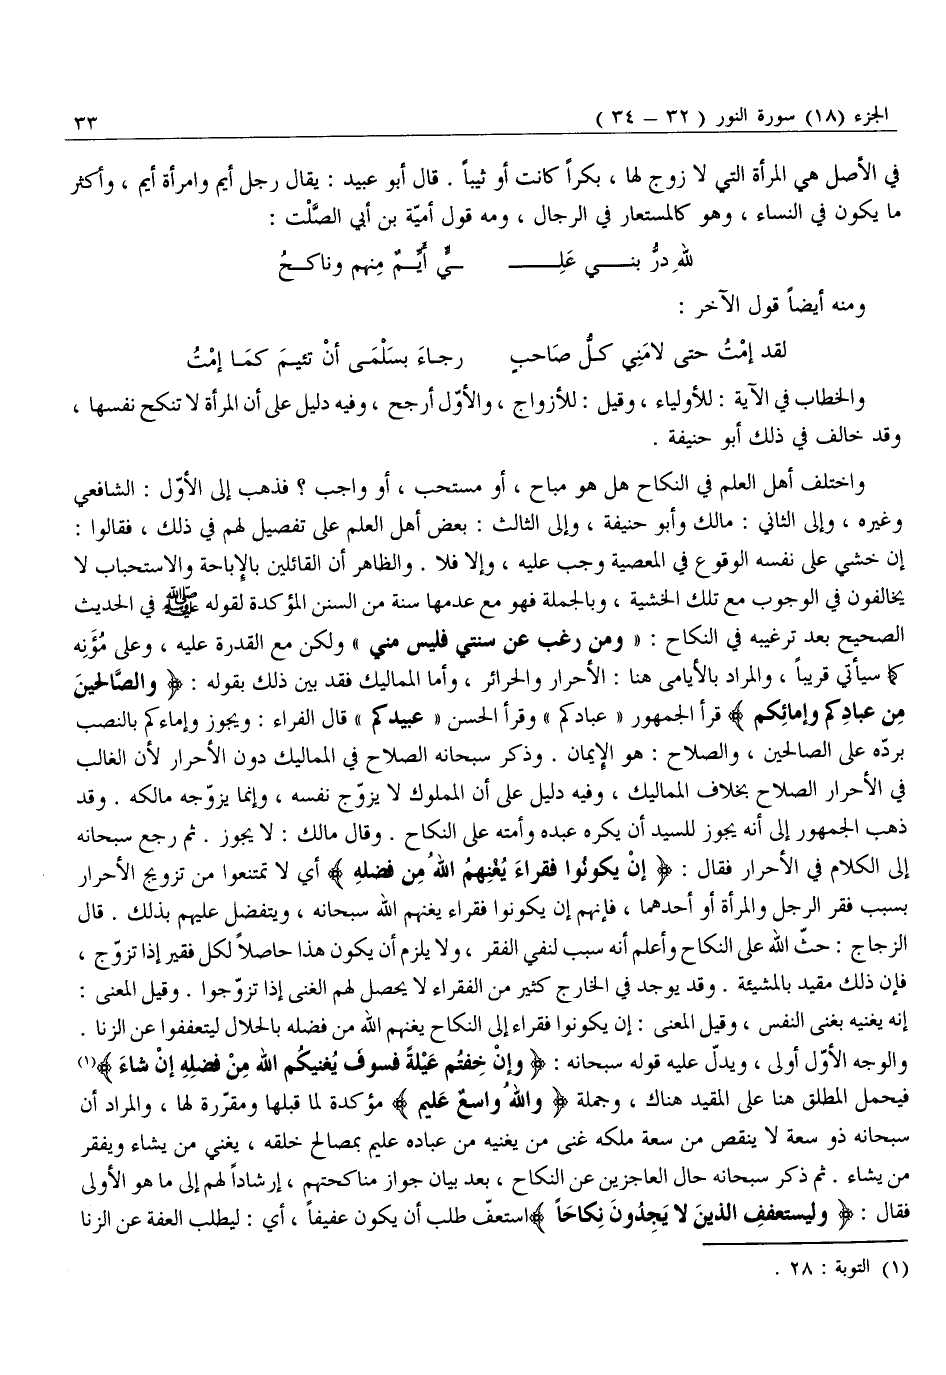 الجزء (١٨) سورة النور ( ٣٢ – ٣٤ ) ٣٣
في الأصل هي المرأة التي لا زوج لها ، بكراً كانت أو ثيباً . قال أبو عبيد : يقال رجل أيم وامرأة أيم ، وأكثر
ما يكون في النساء ، وهو كالمستعار في الرجال ، ومه قول أميّة بن أبي الصَّلْت :
للهِ درُّ بنـــي عَلِـــــ ـــيٍّ أيِّـــمٌ مِنهم وناكـــحُ
ومنه أيضاً قول الآخر :
لقد إمْتُ حتى لامَنِي كلُّ صَاحبٍ رجاءَ بسَلْمَى أنْ تئيمَ كمَا إمْتُ
والخطاب في الآية : للأولياء ، وقيل : للأزواج ، والأوّل أرجح ، وفيه دليل على أن المرأة لا تنكح نفسها ،
وقد خالف في ذلك أبو حنيفة .
واختلف أهل العلم في النكاح هل هو مباح ، أو مستحب ، أو واجب ؟ فذهب إلى الأوّل : الشافعي
وغيره ، وإلى الثاني : مالك وأبو حنيفة ، وإلى الثالث : بعض أهل العلم على تفصيل لهم في ذلك ، فقالوا :
إن خشي على نفسه الوقوع في المعصية وجب عليه ، وإلا فلا . والظاهر أن القائلين بالإِباحة والاستحباب لا
يخالفون في الوجوب مع تلك الخشية ، وبالجملة فهو مع عدمها سنة من السنن المؤكدة لقوله ﷺ في الحديث
الصحيح بعد ترغيبه في النكاح : « ومن رغب عن سنتي فليس مني » ولكن مع القدرة عليه ، وعلى مُؤَنِه
كما سيأتي قريباً ، والمراد بالأيامى هنا : الأحرار والحرائر ، وأما المماليك فقد بين ذلك بقوله : ﴿ والصَّالحينَ
مِن عبادِكم وإمائِكم ﴾ قرأ الجمهور « عبادكم » وقرأ الحسن « عبيدكم » قال الفراء : ويجوز وإماءكم بالنصب
بردّه على الصالحين ، والصلاح : هو الإِيمان . وذكر سبحانه الصلاح في المماليك دون الأحرار لأن الغالب
في الأحرار الصلاح بخلاف المماليك ، وفيه دليل على أن المملوك لا يزوّج نفسه ، وإنما يزوّجه مالكه . وقد
ذهب الجمهور إلى أنه يجوز للسيد أن يكره عبده وأمته على النكاح . وقال مالك : لا يجوز . ثم رجع سبحانه
إلى الكلام في الأحرار فقال : ﴿ إنْ يكونُوا فقراءَ يُغْنِهمُ اللهُ مِن فضلهِ ﴾ أي لا تمتنعوا من تزويج الأحرار
بسبب فقر الرجل والمرأة أو أحدهما ، فإنهم إن يكونوا فقراء يغنهم الله سبحانه ، ويتفضل عليهم بذلك . قال
الزجاج : حثّ الله على النكاح وأعلم أنه سبب لنفي الفقر ، ولا يلزم أن يكون هذا حاصلاً لكل فقير إذا تزوّج ،
فإن ذلك مقيد بالمشيئة . وقد يوجد في الخارج كثير من الفقراء لا يحصل لهم الغنى إذا تزوّجوا . وقيل المعنى :
إنه يغنيه بغنى النفس ، وقيل المعنى : إن يكونوا فقراء إلى النكاح يغنهم الله من فضله بالحلال ليتعففوا عن الزنا .
والوجه الأوّل أولى ، ويدلّ عليه قوله سبحانه : ﴿ وإنْ خِفتُم عَيْلةً فسوفَ يُغنيكُم اللهُ مِنْ فضلِهِ إنْ شاءَ ﴾(١)
فيحمل المطلق هنا على المقيد هناك ، وجملة ﴿ واللهُ واسعٌ عَليم ﴾ مؤكدة لما قبلها ومقرّرة لها ، والمراد أن
سبحانه ذو سعة لا ينقص من سعة ملكه غنى من يغنيه من عباده عليم بمصالح خلقه ، يغني من يشاء ويفقر
من يشاء . ثم ذكر سبحانه حال العاجزين عن النكاح ، بعد بيان جواز مناكحتهم ، إرشاداً لهم إلى ما هو الأولى
فقال : ﴿ وليستعففِ الذينَ لا يَجِدُونَ نِكاحَاً ﴾استعفّ طلب أن يكون عفيفاً ، أي : ليطلب العفة عن الزنا
(١) التوبة : ٢٨ .